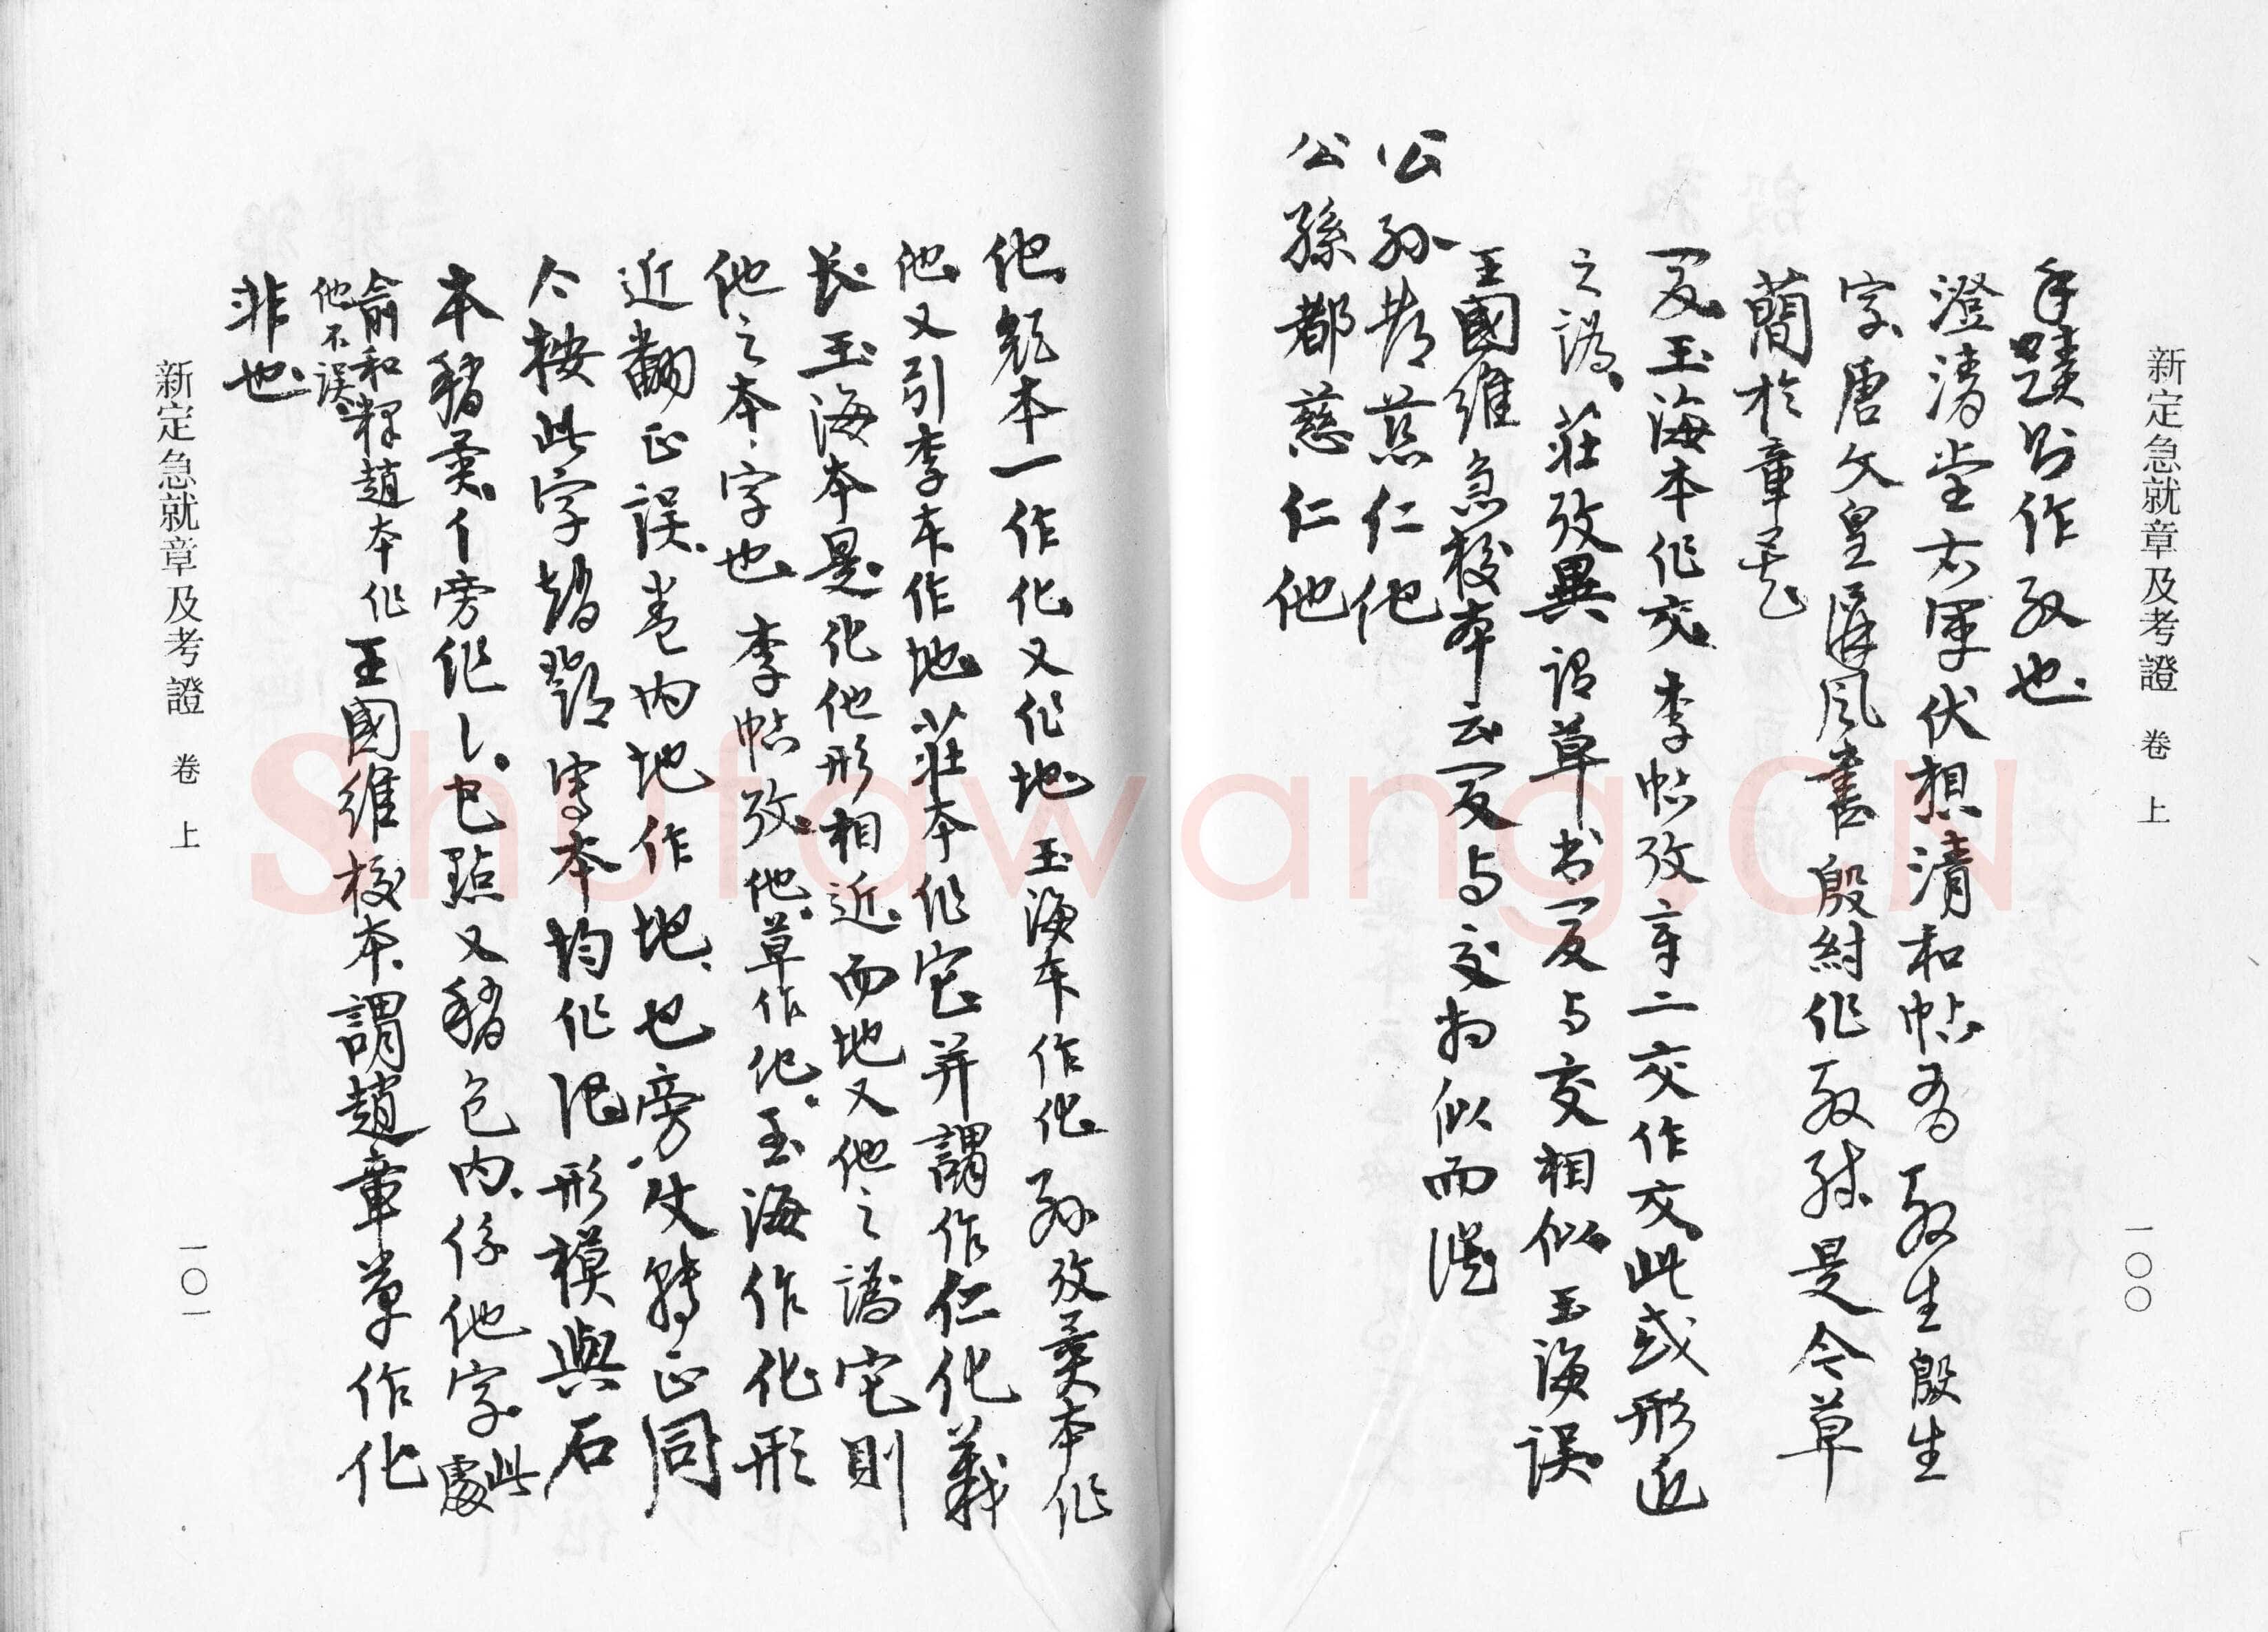 新定急就章及考證 卷上
一〇〇
手蹟別作敦也
澄清堂右軍伏想清和帖為敦生殷生
字唐文皇屏風書殷紂作敦殊是今草
蕑於章草
爰玉海本作交李帖攷章二交作交此或形近
之譌莊攷異謂草書爰与交相似玉海誤
王國維急校本云爰与交相似而混
公孙都慈仁他
公孫都慈仁他
他類本一作化又作地玉海本作化孙攷姜本作
他又引李本作地莊本作它并謂作仁化義
長玉海本是化他形相近而地又他之譌宅則
他之本字也李帖攷他草作化玉海作化形
近翻正誤卷内地作地也旁文轉正同
今按此字趙鄧寫本均作形模與石
本稍異亻旁作乚也點又稍包内係他字此處
俞和釋趙本作他不误王國維校本謂趙章草作化
非也
新定急就章及考證 卷上
一〇一
Shufawang.CN